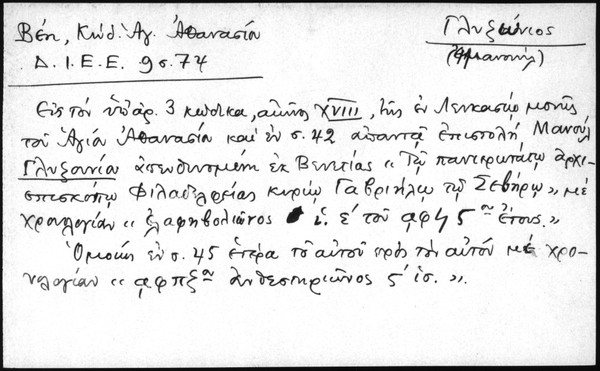 Βέη, Κώδ. Ἁγ. Ἀθανασίου
Δ.Ι.Ε.Ε. 9 σ. 74
Γλυζώνιος
(Ἐμμανουήλ)
Εἰς τὸν ὑπ' ἀρ. 3 κώδικα, αἰῶνος XVIII, τῆς ἐν Λευκασίῳ μονῆς
τοῦ Ἁγίου Ἀθανασίου καὶ ἐν σ. 42 ἀπαντᾷ ἐπιστολὴ Μανουὴλ
Γλυζωνίου ἀπευθυνομένη ἐκ Βενετίας « Τῷ πανιερωτάτῳ ἀρχι-
επισκόπῳ Φιλαδελφείας κυρίῳ Γαβριήλῳ τῷ Σεβήρῳ », μὲ
χρονολογίαν « ἐλαφηβολιῶνος ι. ε' τοῦ αφϟ5ου ἔτους. »
Ὁμοίως ἐν σ. 45 ἑτέρα τοῦ αὐτοῦ πρὸς τὸν αὐτὸν μὲ χρο-
νολογίαν « αφπξου ἀνθεστηριῶνος 5' ἱσ. ».